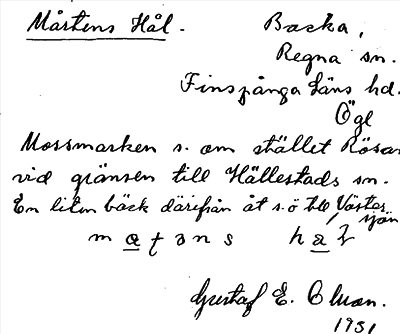 Mårtens Hål.
Backa,
Regna sn.
Finspånga läns hd.
Ögl
Mossmarken s. om stället Rösar
vid gränsen till Hällestads sn.
En liten bäck därifrån åt s.ö till Väster
sjön
Gustaf E. Olson.
1931